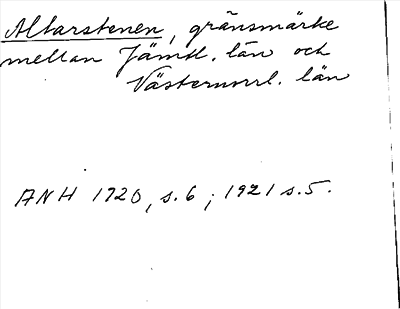 Altarstenen, gränsmärke
mellan Jämtl. län och
Västernorrl. län
ANH 1920, s. 6; 1921 s. 5.